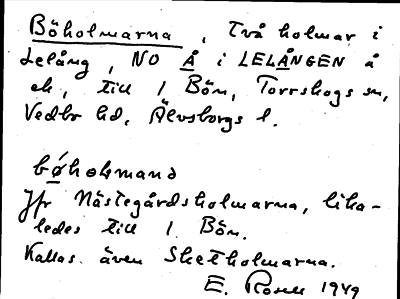 Böholmarna, Två holmar i
Lelång, NO Å i LELÅNGEN å
ek, till 1 Bön, Torrskogs sn,
Vedbo hd, Älvsborgs l.
bǿholmana
Jfr Nästegårdsholmarna, lika-
ledes till 1 Bön.
Kallas även Sketholmarna.
E. Rosell 1949